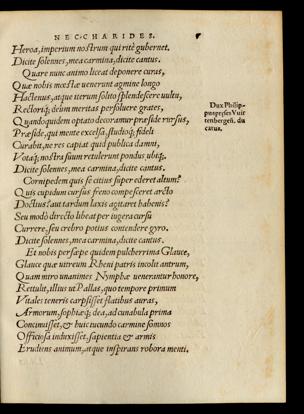 NECCHARIDES.
Heroa, imperium nostrum qui ritè gubernet.
Dicite solennes, mea carmina, dicite cantus.
Quare nunc animo liceat deponere curas,
Quæ nobis mœstæ uenerunt agmine longo
Hactenus, atque iterum solito splendescere uultu,
Rectoriq́; deûm meritas persoluere grates,
Quandoquidem optato decoramur præside rursus,
Præside, qui mente excelsa, studioq́; fideli
Curabit, ne res capiat quid publica damni,
Votaq́; nostra suum retulerunt pondus ubiq́;,
Dicite solennes, mea carmina, dicite cantus.
Cornipedem quis se citius superederet altum?
Quis cupidum cursus freno compesceret arcto
Doctius? aut tardum laxis agitaret habenis?
Seu modò directo libeat per iugera cursu
Currere, seu crebro potius contendere gyro.
Dicite solennes, mea carmina, dicite cantus.
Et nobis persæpe quidem pulcherrima Glauce,
Glauce quæ uitreum Rheni patris incola antrum,
Quam miro unanimes Nymphæ uenerantur honore,
Rettulit, illius ut Pallas, quo tempore primum
Vitales teneris carpsisset flatibus auras,
Armorum, sophiæq́; dea, ad cunabula prima
Concinuisset, & huic iucundo carmine somnos
Officiosa induxisset, sapientia & armis
Erudiens animum, atque inspirans robora menti.
Dux Philip-
pus præses Vuit
tenbergen. du
catus.